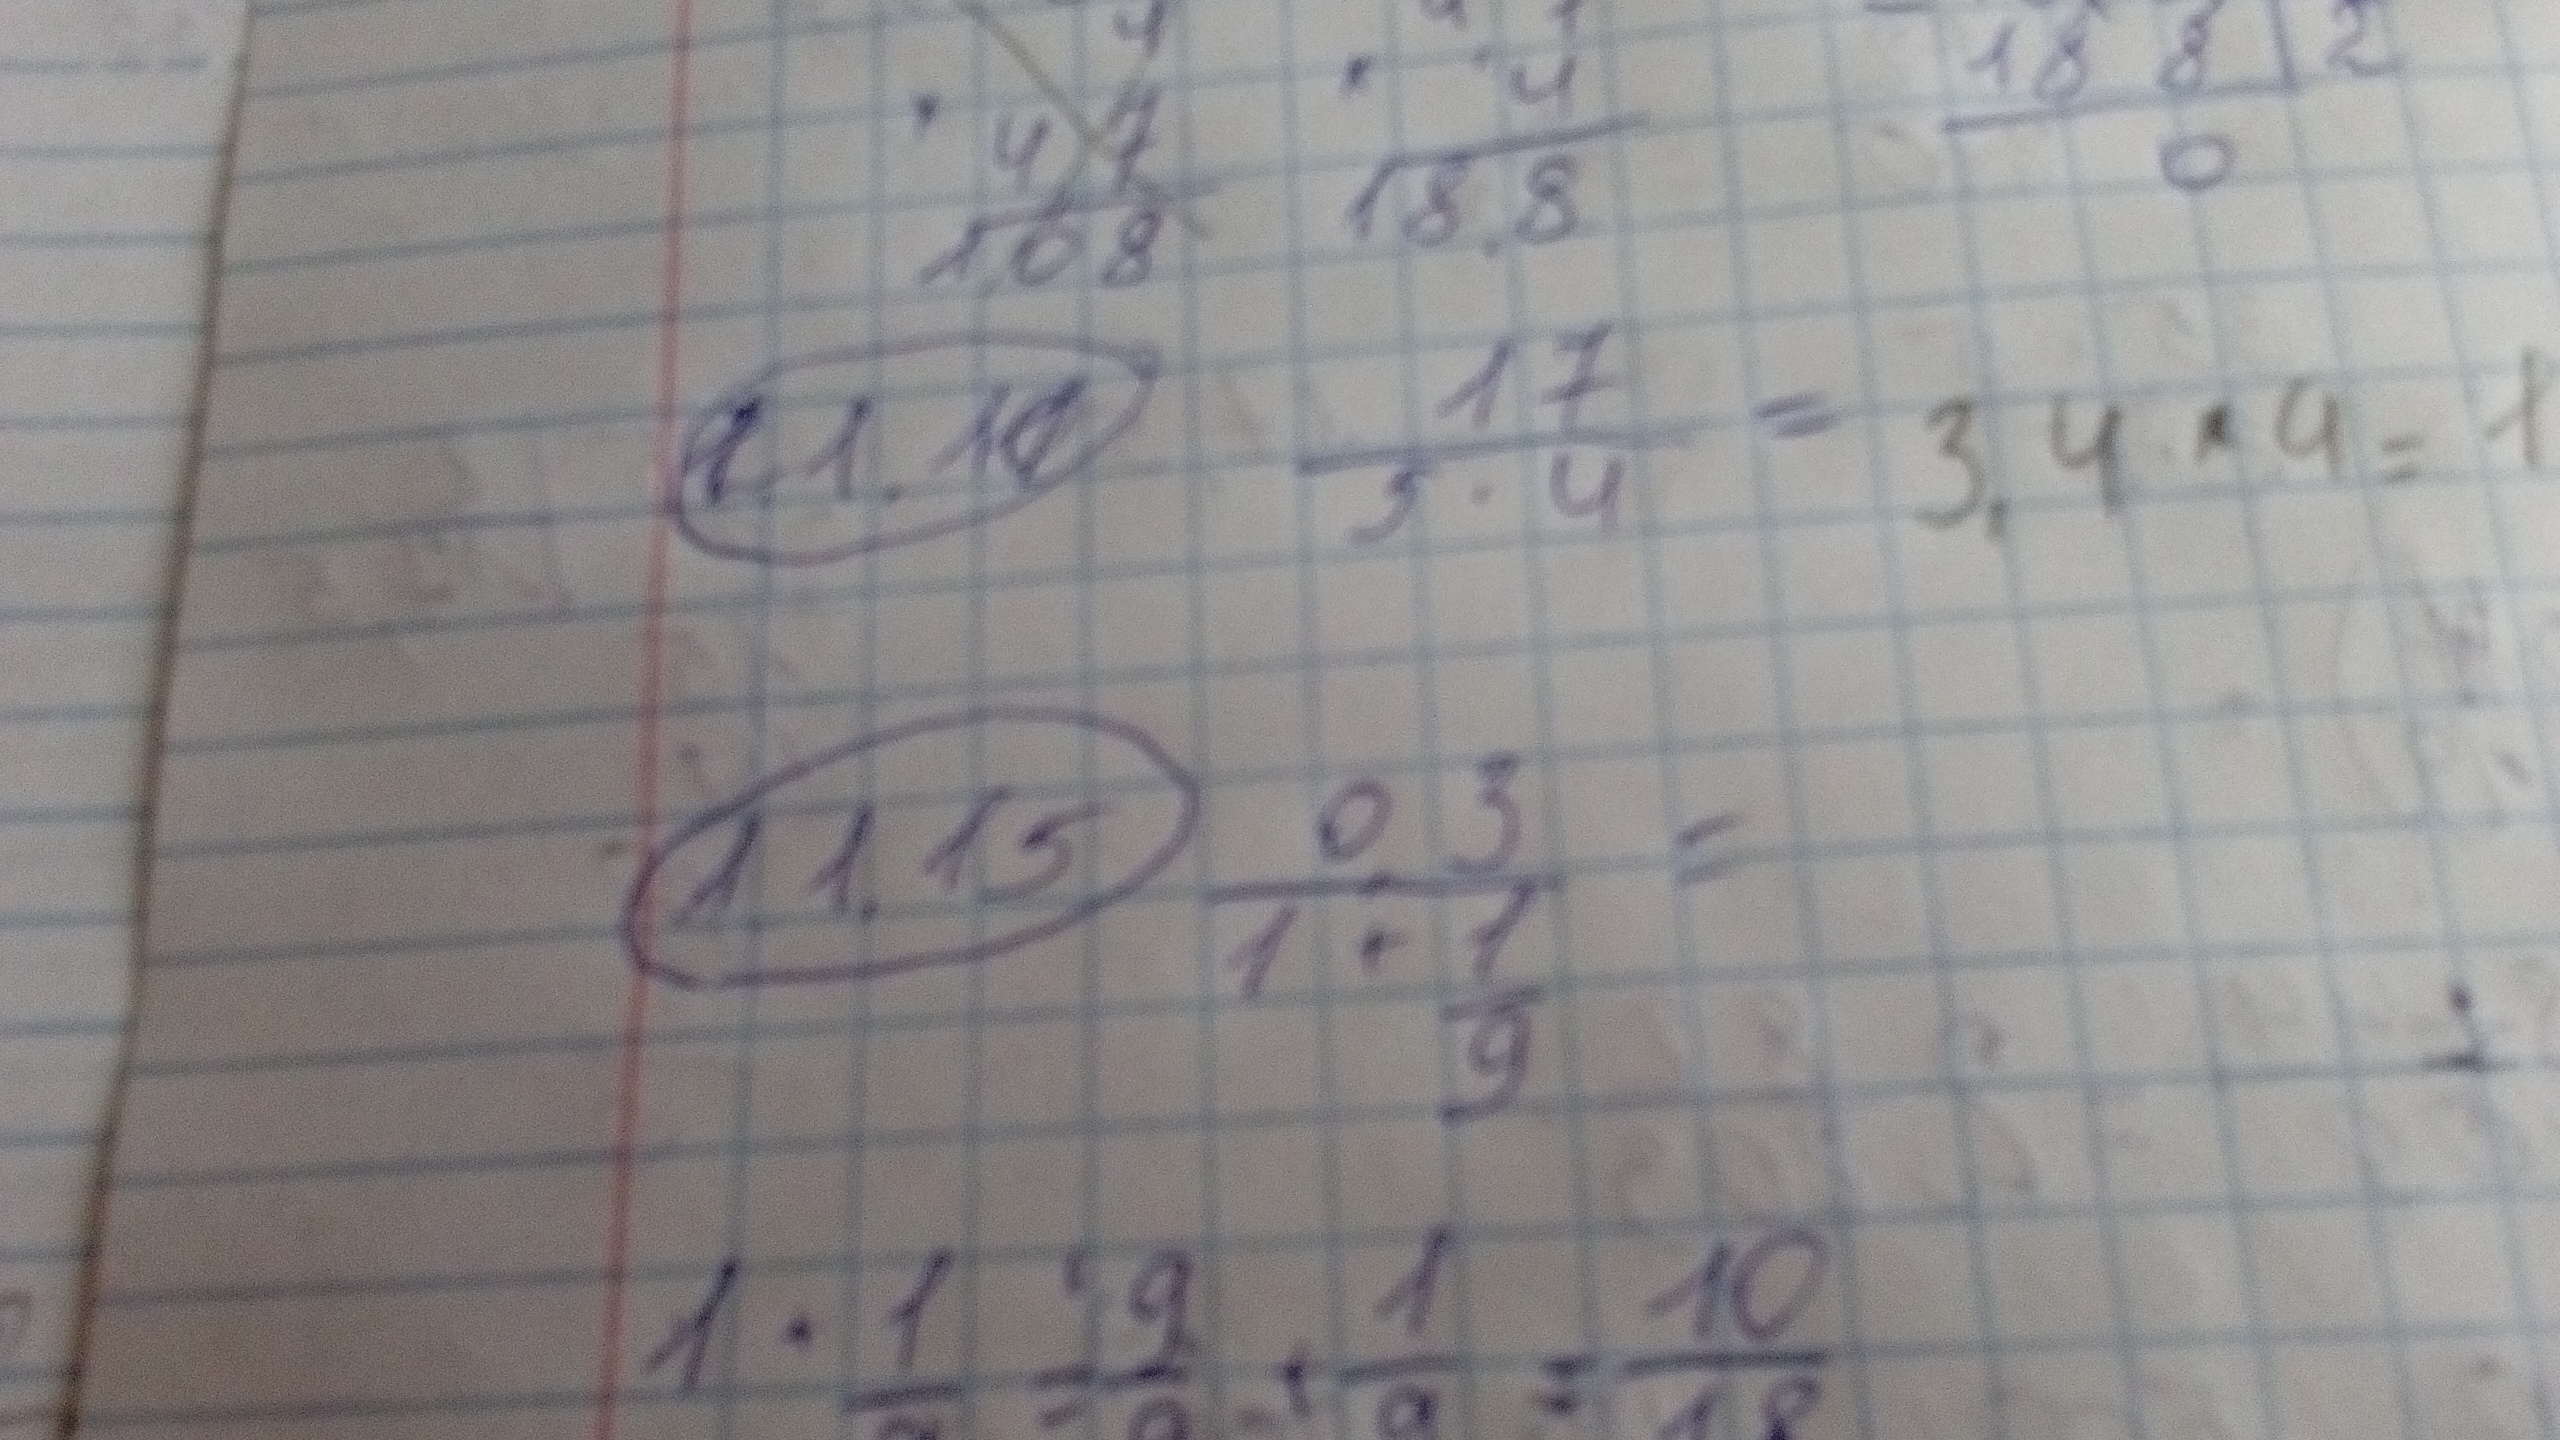 4 7 4
108 18.8 188 2
0
1.1.14 17/5·4 = 3,4·4=1
11.15 0 3/(1+1/9) =
1 · 1/9 = 9/9 · 1/9 = 10/18